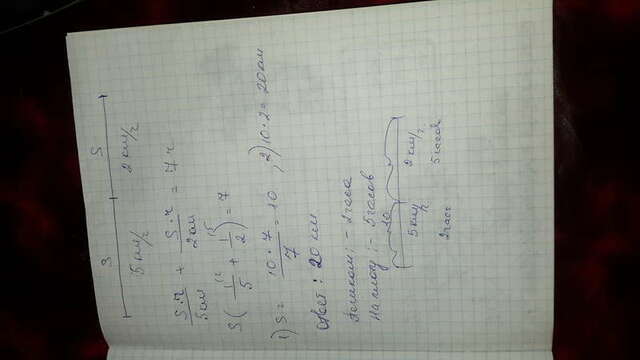 S S
5 км/ч 2 км/ч
S·ч/5км + S·ч/2км = 7ч
S(1/5 + 1/2) = 7
1) S = 10·7/7 = 10, 2) 10·2 = 20км
Ответ: 20 км
Пешком: - 2часа
На плоту: - 5часов
S = 10
5 км/ч 2 км/ч
2часа 5часов